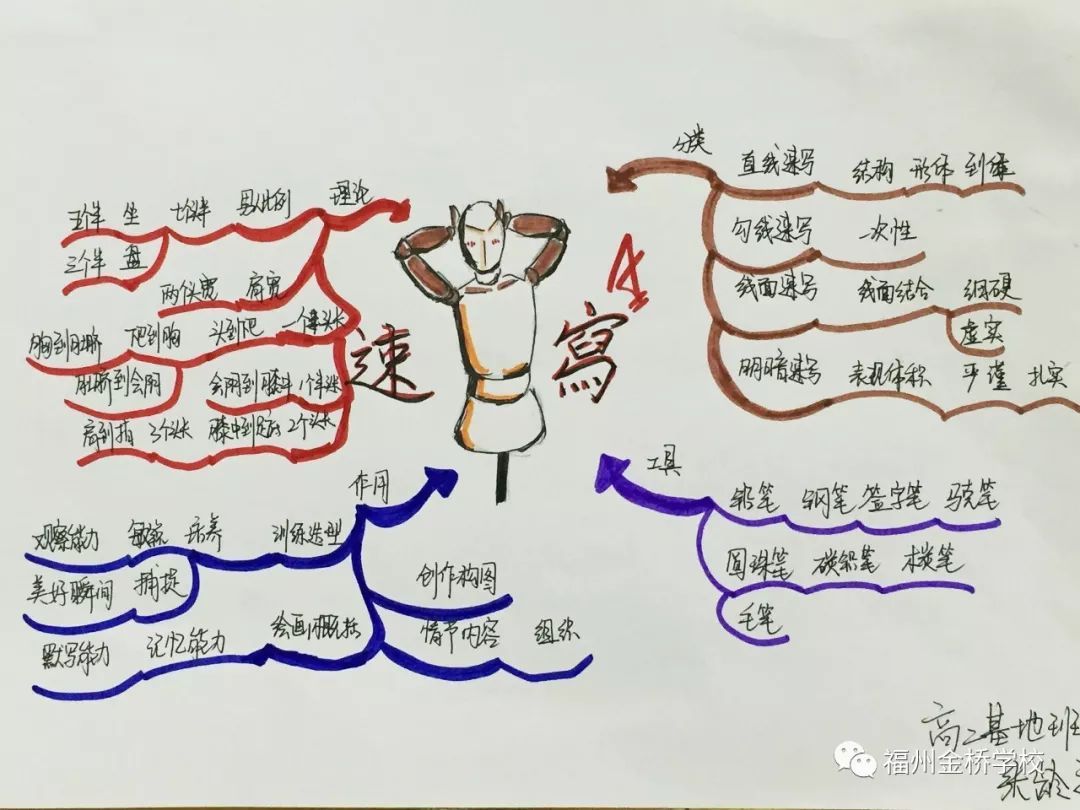 理论
男人比例 七个半 坐 五个半
盘 三个半
肩宽 两个头宽
一个半头长 头到 到胸 胸到肚脐
肚脐到会阴 会阴到膝 1个半头长
肩到指 3个头长 膝中到 2个头长
速
寫
分类
直线速写 结构 形体 到体
勾线速写 一次性
线面速写 线面结合 细硬
虚实
明暗速写 表现体积 严谨 扎实
作用
训练造型 培养 敏锐 观察能力
捕捉 美好瞬间
创作构图
绘画概括 记忆能力 默写能力
情节内容 组织
工具
铅笔 钢笔 签字笔 马克笔
圆珠笔 炭铅笔 木炭笔
毛笔
高二基地班
福州金桥学校
张